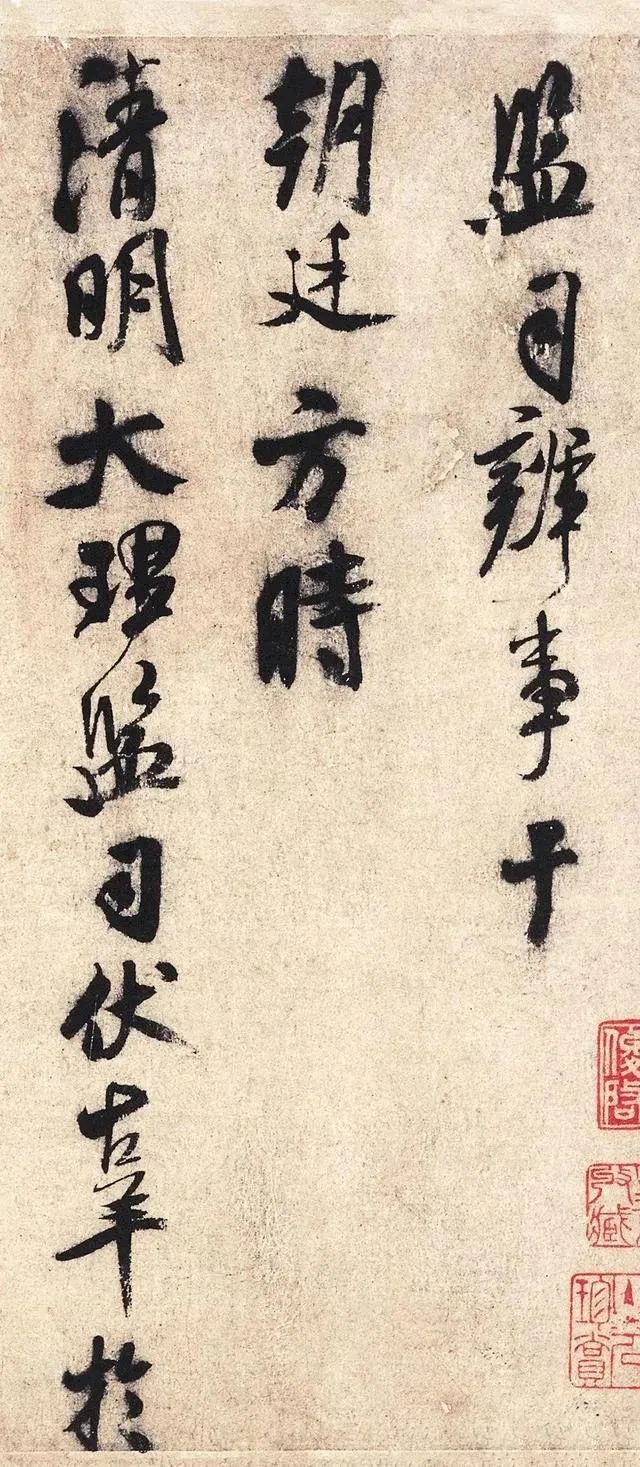 監司辨事于
朝廷方時
清明大理監司伏辜於
珍賞